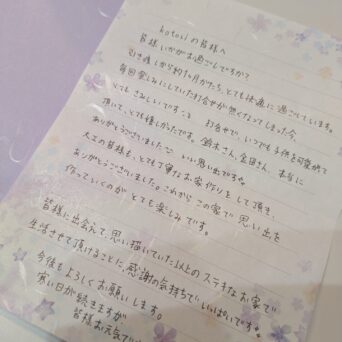 kotoriの皆様へ
皆様いかがお過ごしですか?
引き渡しから約1ヶ月がたち、とても快適に過ごせています。
毎回楽しみにしていた打合せが無くなってしまった今、
とてもさみしいです。 打合せで、いつでも子供を可愛がって
頂いて、とても嬉しかったです。鈴木さん、金田さん、本当に
ありがとうございました。いい思い出です。
大工の皆様も、とても丁寧なお家作りをして頂き、
ありがとうございました。これからこの家で思い出を
作っていくのがとても楽しみです。
皆様に出会えて、思い描いていた以上のステキなお家で
生活させて頂けることに、感謝の気持ちでいっぱいです。
今後もよろしくお願いします。
寒い日が続きますが
皆様お元気で